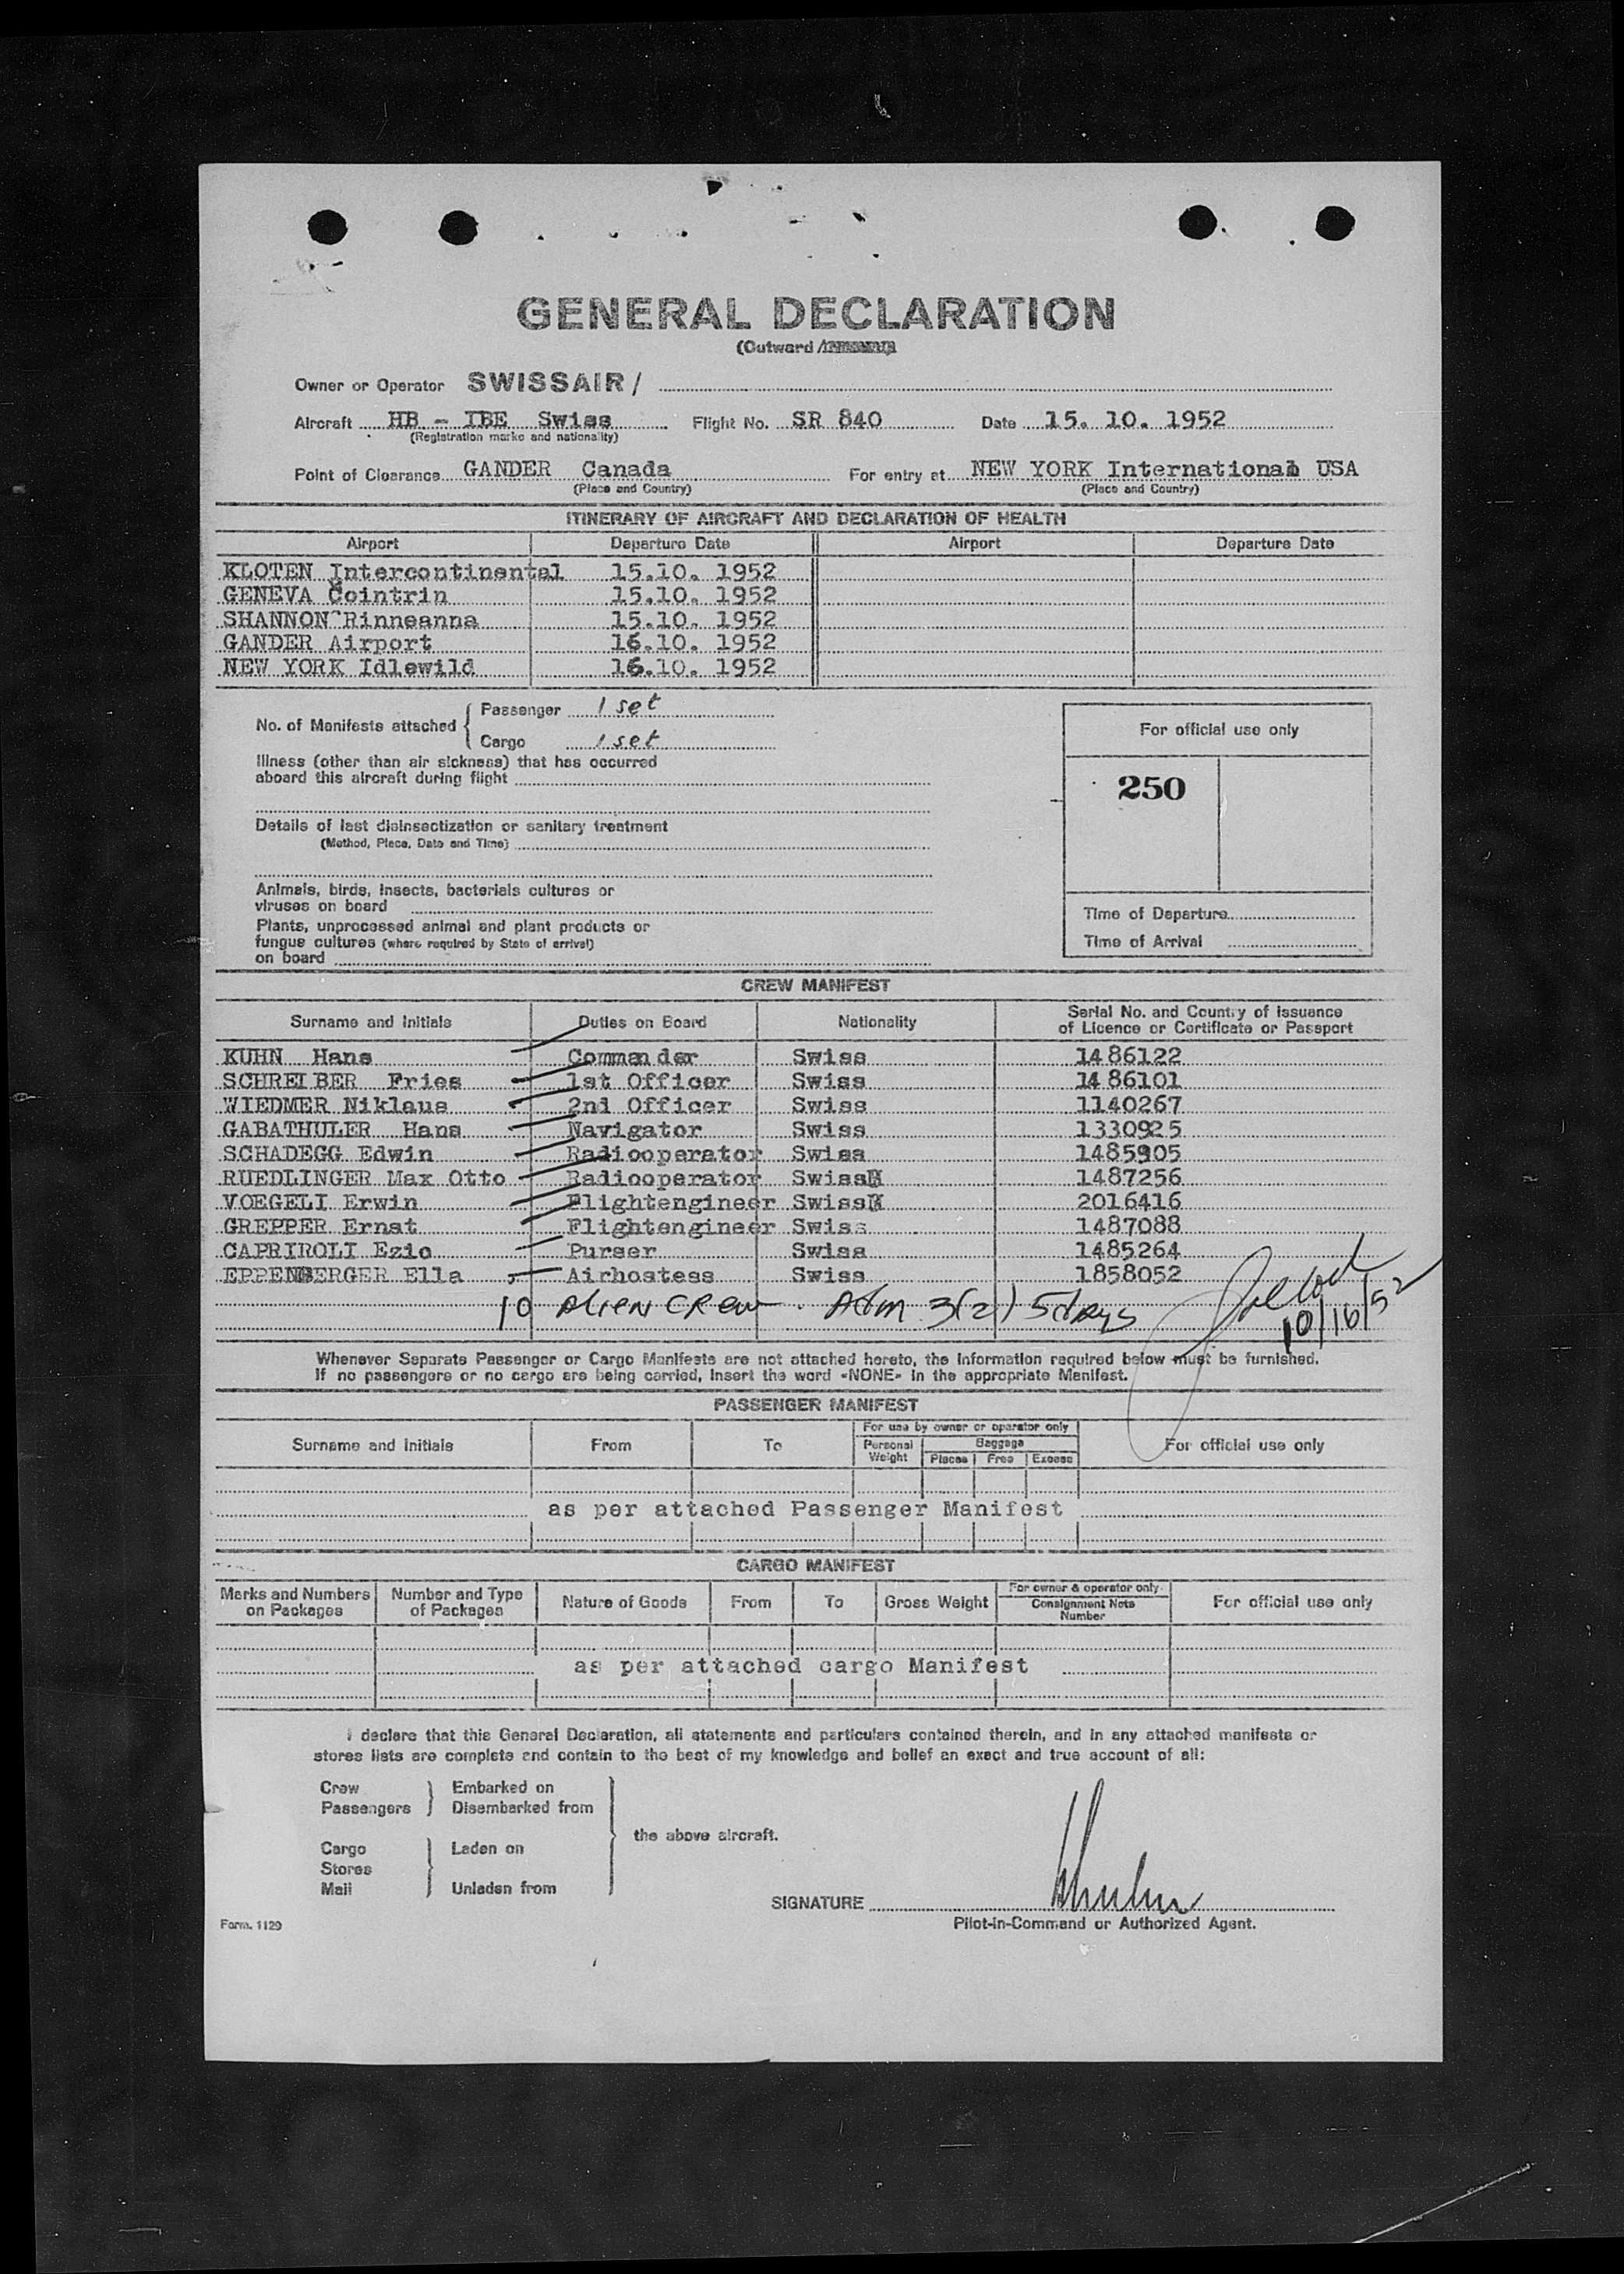 GENERAL DECLARATION
(Outward /
Owner or Operator SWISSAIR /
Aircraft HB - IBE Swiss Flight No. SR 840 Date 15. 10. 1952
(Registration marks and nationality)
Point of Clearance GANDER Canada For entry at NEW YORK International USA
(Place and Country) (Place and Country)
ITINERARY OF AIRCRAFT AND DECLARATION OF HEALTH
Airport Departure Date Airport Departure Date
KLOTEN Intercontinental 15.10. 1952
GENEVA Cointrin 15.10. 1952
SHANNON Rinneanna 15.10. 1952
GANDER Airport 16.10. 1952
NEW YORK Idlewild 16.10. 1952
No. of Manifests attached { Passenger 1 set
Cargo 1 set
For official use only
Illness (other than air sickness) that has occurred
aboard this aircraft during flight
250
Details of last disinsectization or sanitary treatment
(Method, Place, Date and Time)
Animals, birds, insects, bacterials cultures or
viruses on board
Plants, unprocessed animal and plant products or
fungus cultures (where required by State of arrival)
on board
Time of Departure
Time of Arrival
CREW MANIFEST
Surname and Initials Duties on Board Nationality Serial No. and Country of Issuance
of Licence or Certificate or Passport
KUHN Hans Commander Swiss 1486122
SCHREIBER Fries 1st Officer Swiss 1486101
WIEDMER Niklaus 2nd Officer Swiss 1140267
GABATHULER Hans Navigator Swiss 1330925
SCHADEGG Edwin Radiooperator Swiss 1485905
RUEDLINGER Max Otto Radiooperator Swiss 1487256
VOEGELI Erwin Flightengineer Swiss 2016416
GREPPER Ernst Flightengineer Swiss 1487088
CAPRIROLI Ezio Purser Swiss 1485264
EPPENBERGER Ella Airhostess Swiss 1858052
10 ALIEN CREW. Adm 3(2) 5 days
10/16/52
Whenever Separate Passenger or Cargo Manifests are not attached hereto, the information required below must be furnished.
If no passengers or no cargo are being carried, insert the word «NONE» in the appropriate Manifest.
PASSENGER MANIFEST
Surname and Initials From To For use by owner or operator only For official use only
Personal Weight Baggage
Places Free Excess
as per attached Passenger Manifest
CARGO MANIFEST
Marks and Numbers on Packages Number and Type of Packages Nature of Goods From To Gross Weight For owner & operator only Consignment Note Number For official use only
as per attached cargo Manifest
I declare that this General Declaration, all statements and particulars contained therein, and in any attached manifests or
stores lists are complete and contain to the best of my knowledge and belief an exact and true account of all:
Crew Embarked on
Passengers Disembarked from
the above aircraft.
Cargo Laden on
Stores
Mail Unladen from
SIGNATURE
Pilot-in-Command or Authorized Agent.
Form. 1129